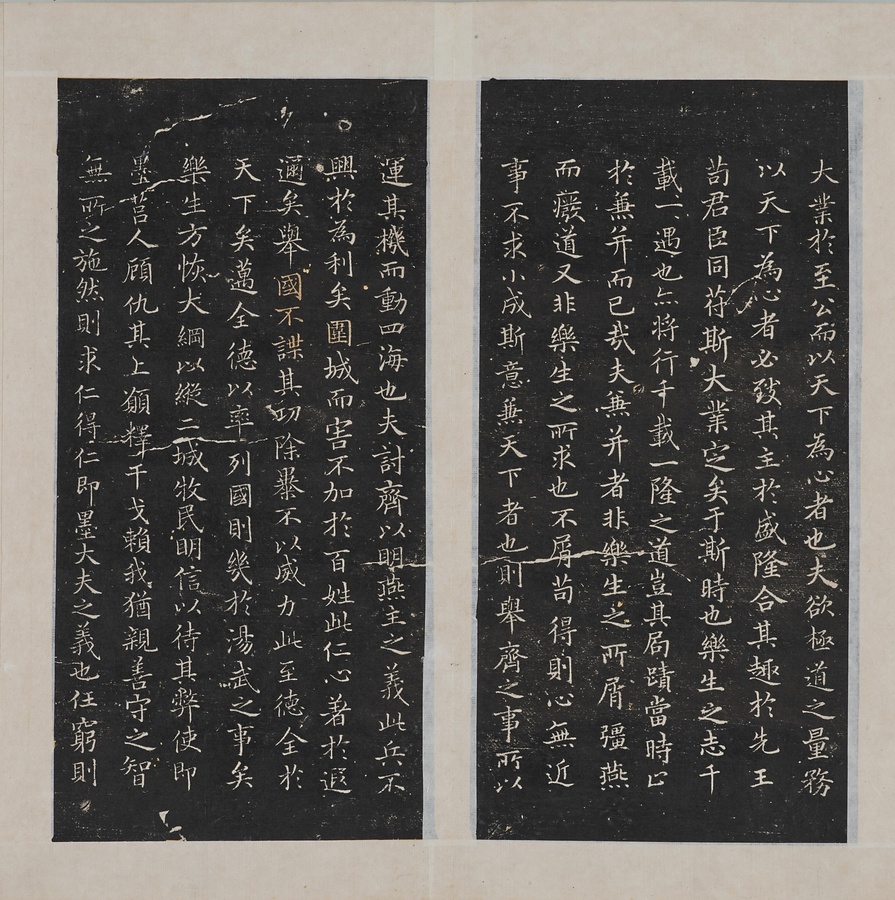 大業於至公而以天下為心者也夫欲極道之量務
以天下為心者必致其主於盛隆合其趣於先王
苟君臣同苻斯大業定矣于斯時也樂生之志千
載一遇也亦將行千載一隆之道豈其局蹟當時止
於蕪并而已哉夫蕪并者非樂生之所屑彊燕
而癈道又非樂生之所求也不屑苟得則心無近
事不求小成斯意蕪天下者也則舉齊之事所以
運其機而動四海也夫討齊以明燕主之義此兵不
興於為利矣圍城而害不加於百姓此仁心著於遐
邇矣舉國不謀其功除暴不以威力此至德全於
天下矣邁全德以率列國則幾於湯武之事矣
樂生方恢大綱以縱二城牧民明信以待其弊使即
墨莒人顧仇其上願釋干戈賴我猶親善守之智
無所之施然則求仁得仁即墨大夫之義也任窮則